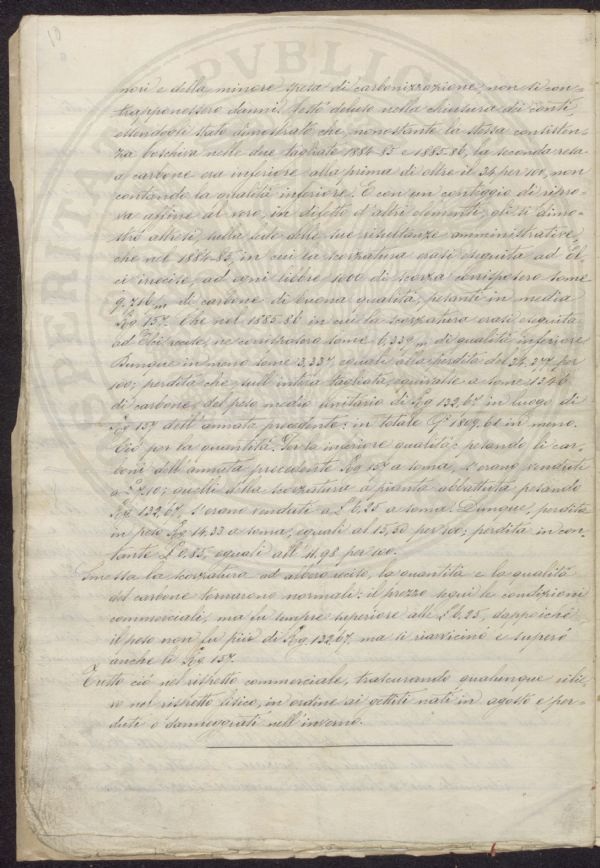 10
nori e della minore spesa di carbonizzazione, non si con-
trapponessero danni. Restò deluso nella chiusura dei conti
essendogli stato dimostrato che, nonostante la stessa consisten-
za boschiva nelle due tagliate 1884-85 e 1885-86, la seconda resa
a carbone era inferiore alla prima di oltre il 34 per 100, non
contando la qualità inferiore. E con un conteggio di ripro-
va assime al vero, in difetto d'altri elementi, gli si dimo-
strò altresì, sulla sede delle sue risultanze amministrative
che nel 1884-85, in cui la scorzatura erasi eseguita ad El-
ci incise, ad ogni libbre 1000 di scorza corrisposero some
9,716 di carbone di buona qualità, pesanti in media
Kg 157. Che nel 1885-86 in cui la scorzatura erasi eseguita
ad Elci recise, ne corrisposero some 6,339 di qualità inferiore
Dunque in meno some 3,337 eguale alla perdita del 34,277 per
100; perdita che, sull'intiera tagliata, equivalse a some 1346
di carbone, del peso medio unitario di Kg 132,67 in luogo di
Kg 157 dell'annata precedente: in totale 1809,61 in meno.
Ciò per la quantità. Per la inferiore qualità: pesando li car-
boni dell'annata precedente Kg 157 a soma, s'erano venduti
a £ 7,10; quelli della scorzatura a pianta abbattuta pesando
Kg 132,67, s'erano venduti a £ 6,25 a soma. Dunque, perdita
in peso Kg 14.33 a soma, eguali al 15,50 per 100; perdita in con-
tante £ 0,85, eguali all'11.98 per 100.
Smessa la scorzatura ad albero reciso, la quantità e la qualità
del carbone tornarono normali: il prezzo seguì le condizioni
commerciali, ma fu sempre superiore alle £ 6,25, dappoichè
il peso non fu più di Kg 132,67 ma si riavvicinò e superò
anche li Kg 157.
Tutto ciò nel rispetto commerciale, trascurando qualunque rilie-
vo nel rispetto fisico, in ordine ai gettiti nati in agosto e per-
duti o danneggiati nell'inverno.